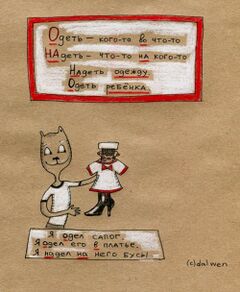 Одеть – кого-то во что-то
НАдеть – что-то на кого-то
Надеть одежду.
Одеть ребёнка.
Я одел сапог,
Я одел его в платье,
Я надел на него бусы
(c)dalwen